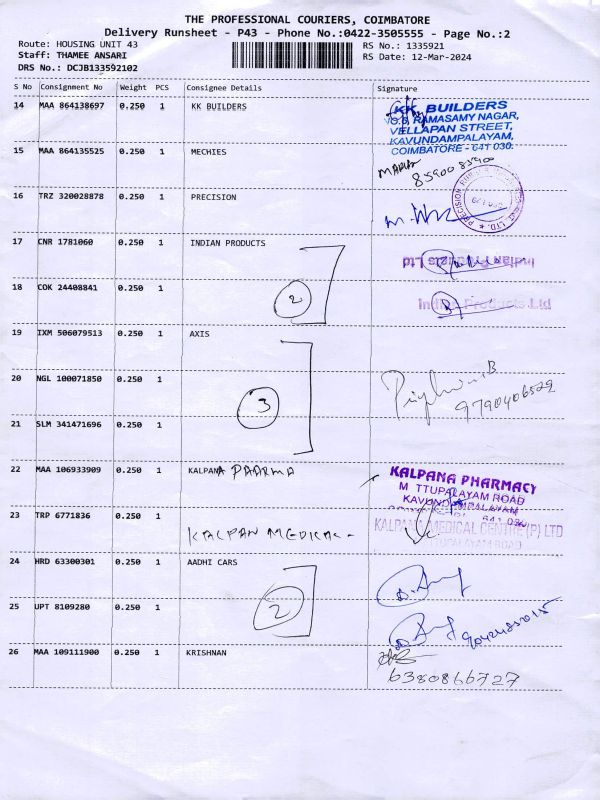 THE PROFESSIONAL COURIERS, COIMBATORE
Delivery Runsheet - P43 - Phone No.:0422-3505555 - Page No.:2
Route: HOUSING UNIT 43
RS No.: 1335921
Staff: THAMEE ANSARI
RS Date: 12-Mar-2024
DRS No.: DCJB133592102
S No Consignment No Weight PCS Consignee Details Signature
14 MAA 864138697 0.250 1 KK BUILDERS
KK BUILDERS
RAMASAMY NAGAR,
VELLAPAN STREET,
KAVUNDAMPALAYAM,
COIMBATORE - 641 030.
15 MAA 864135525 0.250 1 MECHIES
85900 85900
16 TRZ 320028878 0.250 1 PRECISION
17 CNR 1781060 0.250 1 INDIAN PRODUCTS
Indian Products Ltd
18 COK 24408841 0.250 1
2
Indian Products Ltd
19 IXM 506079513 0.250 1 AXIS
20 NGL 100071850 0.250 1
3
9790406529
21 SLM 341471696 0.250 1
22 MAA 106933909 0.250 1 KALPANA PAARMA
KALPANA PHARMACY
M TTUPALAYAM ROAD
KAVUNDAMPALAYAM
23 TRP 6771836 0.250 1 KALPAN MEDICAL -
KALPANA MEDICAL CENTRE (P) LTD
24 HRD 63300301 0.250 1 AADHI CARS
25 UPT 8109280 0.250 1
2
26 MAA 109111900 0.250 1 KRISHNAN
6380866727